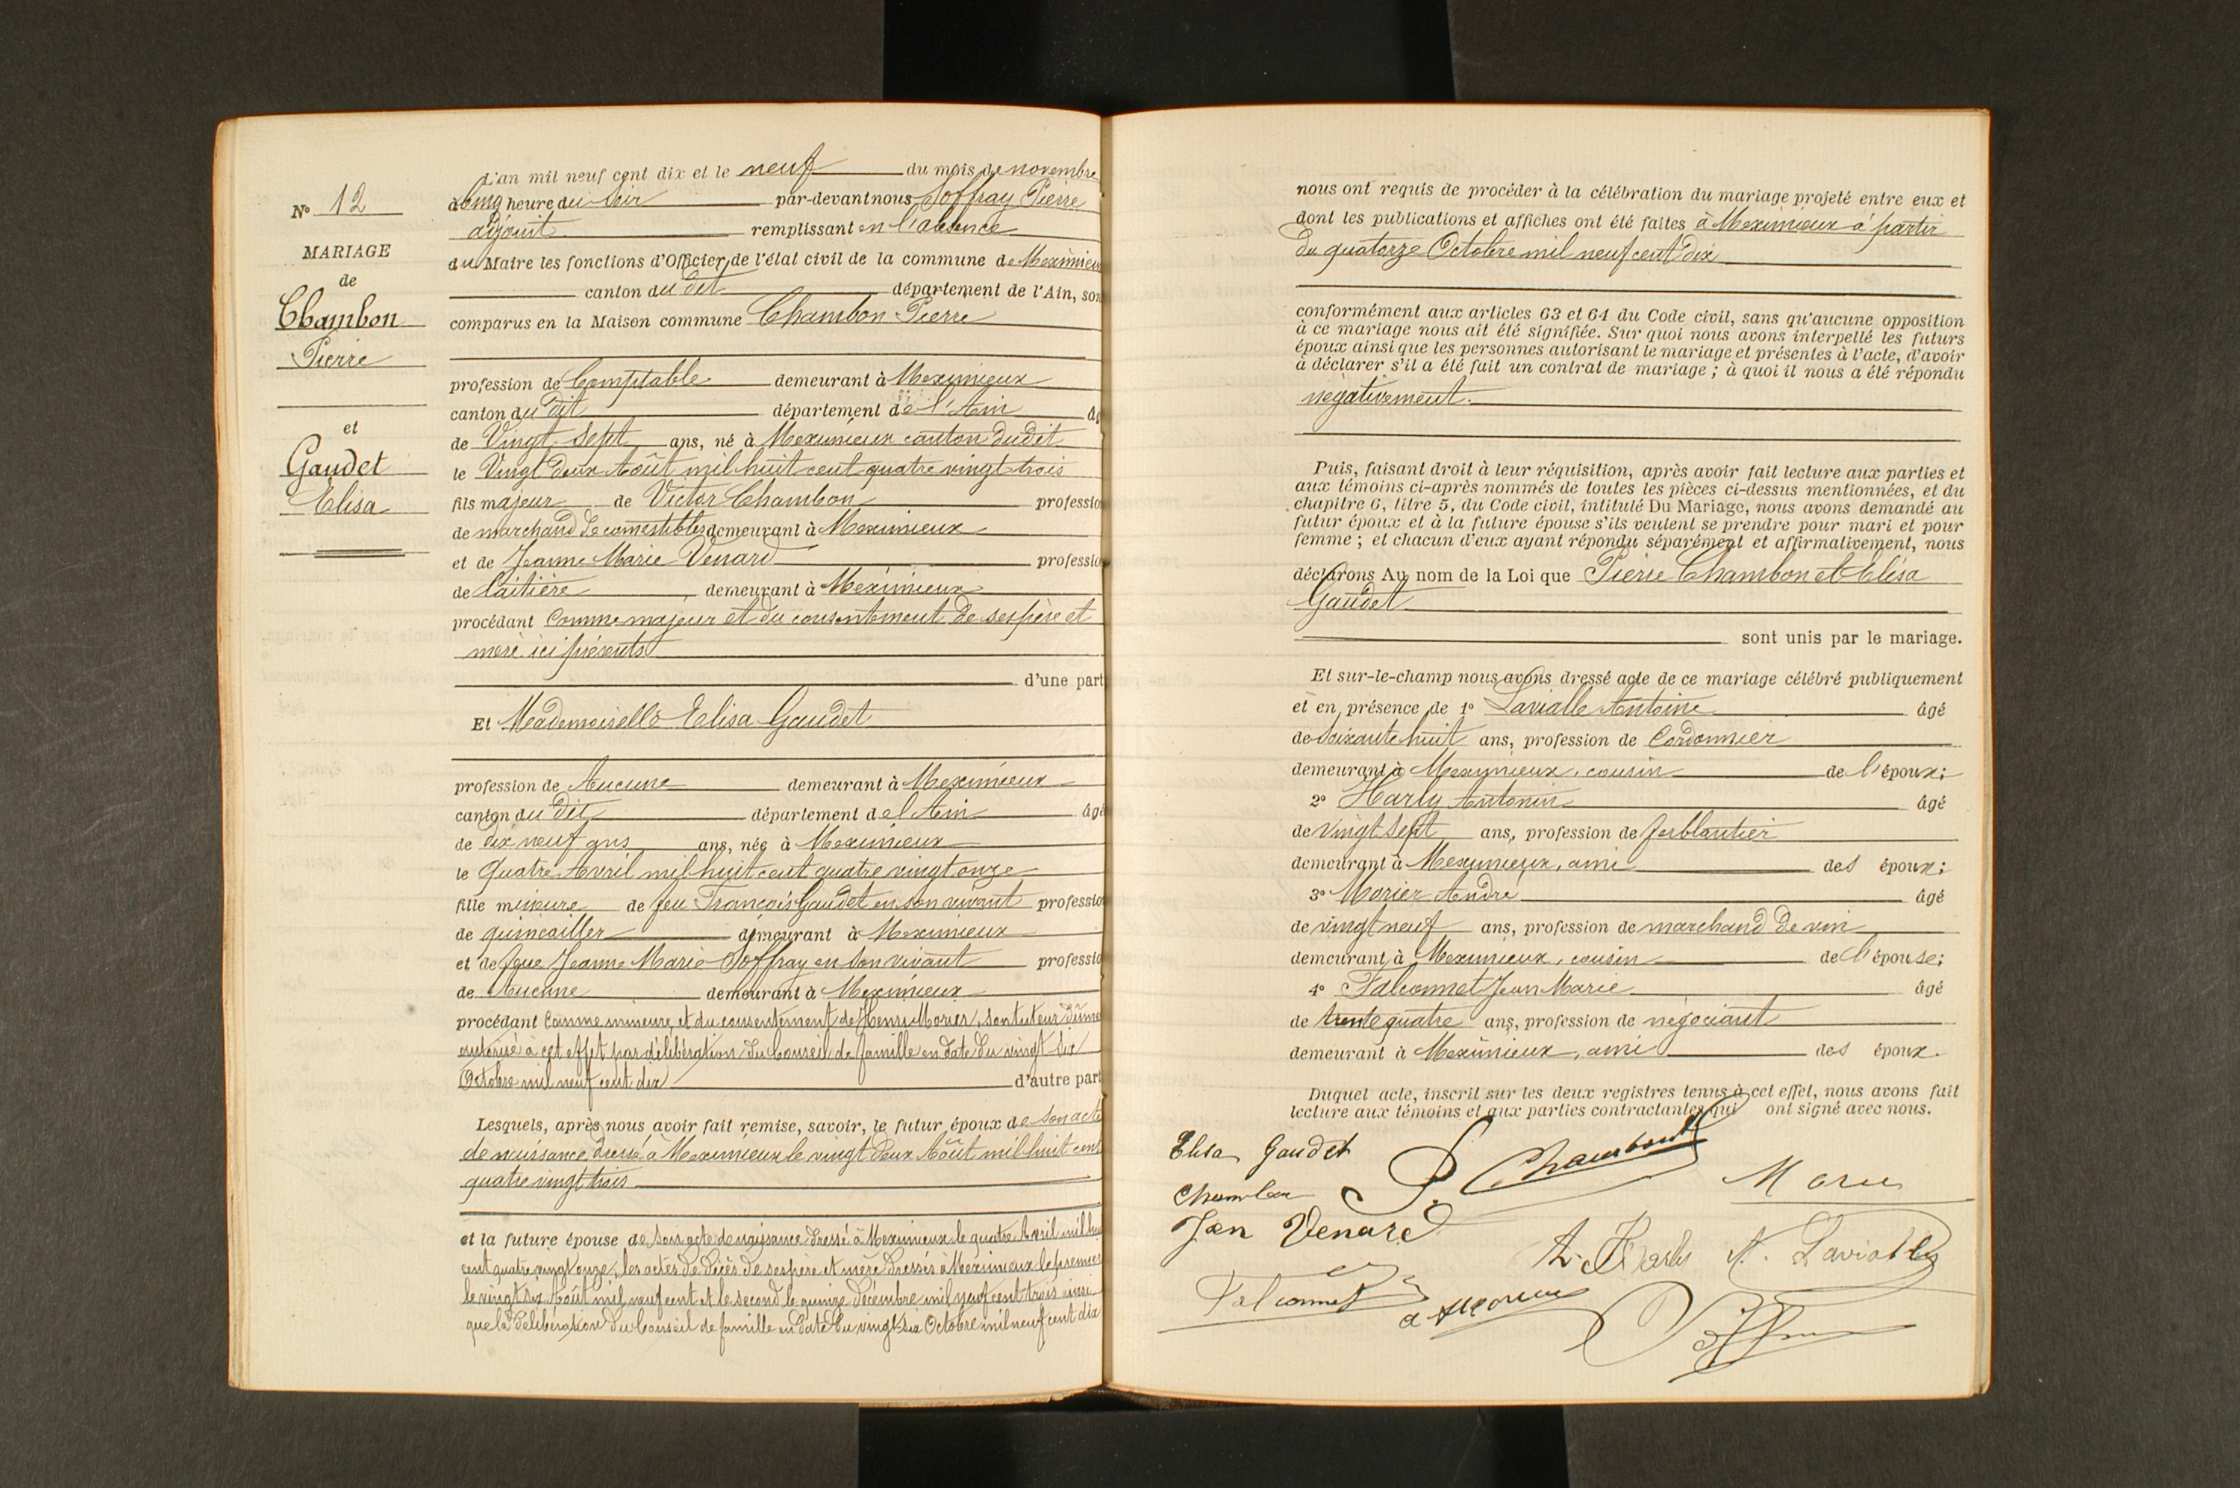 N° 12
MARIAGE
de
Chambon
Pierre
et
Gaudet
Elisa
L'an mil neuf cent dix et le neuf du mois de novembre
à cinq heure du soir par-devant nous Joffray Pierre
adjoint remplissant en l'absence
du Maire les fonctions d'Officier de l'état civil de la commune de Meximieux
canton du dit département de l'Ain, son
comparus en la Maison commune Chambon Pierre
profession de Comptable demeurant à Meximieux
canton du dit département de l'Ain âg
de Vingt sept ans, né à Meximieux canton dudit
le Vingt deux Août mil huit cent quatre vingt trois
fils majeur de Victor Chambon professio
de marchand de comestibles demeurant à Meximieux
et de Jeanne Marie Venard professio
de laitière demeurant à Meximieux
procédant comme majeur et du consentement de ses père et
mère ici présents
d'une part
Et Mademoiselle Elisa Gaudet
profession de Aucune demeurant à Meximieux
canton du dit département de l Ain âgé
de dix neuf ans ans, née à Meximieux
le quatre Avril mil huit cent quatre vingt onze
fille mineure de feu François Gaudet en son vivant professio
de quincailler demeurant à Meximieux
et de feue Jeanne Marie Joffray en son vivant professio
de Aucune demeurant à Meximieux
procédant comme mineure et du consentement de Henri Morier, son tuteur dûme
autorisé à cet effet par délibération du Conseil de famille en date du vingt six
Octobre mil neuf cent dix d'autre part
Lesquels, après nous avoir fait remise, savoir, le futur époux de son acte
de naissance dressé à Meximieux le vingt deux Août mil huit cent
quatre vingt trois
et la future épouse de son acte de naissance dressé à Meximieux le quatre Avril mil hui
cent quatre vingt onze, les actes de décès de ses père et mère dressés à Meximieux le premier
le vingt six Août mil neuf cent et le second le quinze décembre mil neuf cent trois ainsi
que la délibération du Conseil de famille en date du vingt six Octobre mil neuf cent dix
nous ont requis de procéder à la célébration du mariage projeté entre eux et
dont les publications et affiches ont été faites à Meximieux à partir
du quatorze Octobre mil neuf cent dix
conformément aux articles 63 et 64 du Code civil, sans qu'aucune opposition
à ce mariage nous ait été signifiée. Sur quoi nous avons interpellé les futurs
époux ainsi que les personnes autorisant le mariage et présentes à l'acte, d'avoir
à déclarer s'il a été fait un contrat de mariage ; à quoi il nous a été répondu
négativement.
Puis, faisant droit à leur réquisition, après avoir fait lecture aux parties et
aux témoins ci-après nommés de toutes les pièces ci-dessus mentionnées, et du
chapitre 6, titre 5, du Code civil, intitulé Du Mariage, nous avons demandé au
futur époux et à la future épouse s'ils veulent se prendre pour mari et pour
femme ; et chacun d'eux ayant répondu séparément et affirmativement, nous
déclarons Au nom de la Loi que Pierre Chambon et Elisa
Gaudet
sont unis par le mariage.
Et sur-le-champ nous avons dressé acte de ce mariage célébré publiquement
et en présence de 1° Lavialle Antoine âgé
de soixante huit ans, profession de Cordonnier
demeurant à Meximieux, cousin de l'époux;
2° Harly Antonin âgé
de vingt sept ans, profession de ferblantier
demeurant à Meximieux, ami des époux;
3° Morier André âgé
de vingt neuf ans, profession de marchand de vin
demeurant à Meximieux, cousin de l'épouse;
4° Falconnet Jean Marie âgé
de trente quatre ans, profession de négociant
demeurant à Meximieux, ami des époux.
Duquel acte, inscrit sur les deux registres tenus à cet effet, nous avons fait
lecture aux témoins et aux parties contractantes qui ont signé avec nous.
Elisa Gaudet P. Chambon
Chambon
Venard A. Lavialle
Falconnet